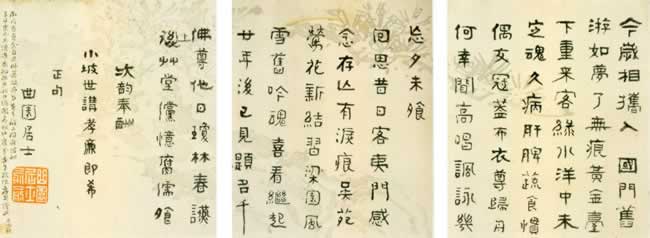 今歲相攜入 國門舊
游如夢了無痕黃金臺
下重來客綠水洋中未
定魂久病肝脾蔬食慣
偶交冠蓋布衣尊歸舟
何幸聞高唱諷詠幾
忘夕未飧
回思昔日客夷門感
念存亡有淚痕吳苑
鶯花新結習梁園風
雪舊吟魂喜看繼起
廿年後已見題名千
佛尊他日瓊林春讌
後艸堂儻憶腐儒飧
次韵奉酬
小坡世講孝廉即希
正句
曲園居士